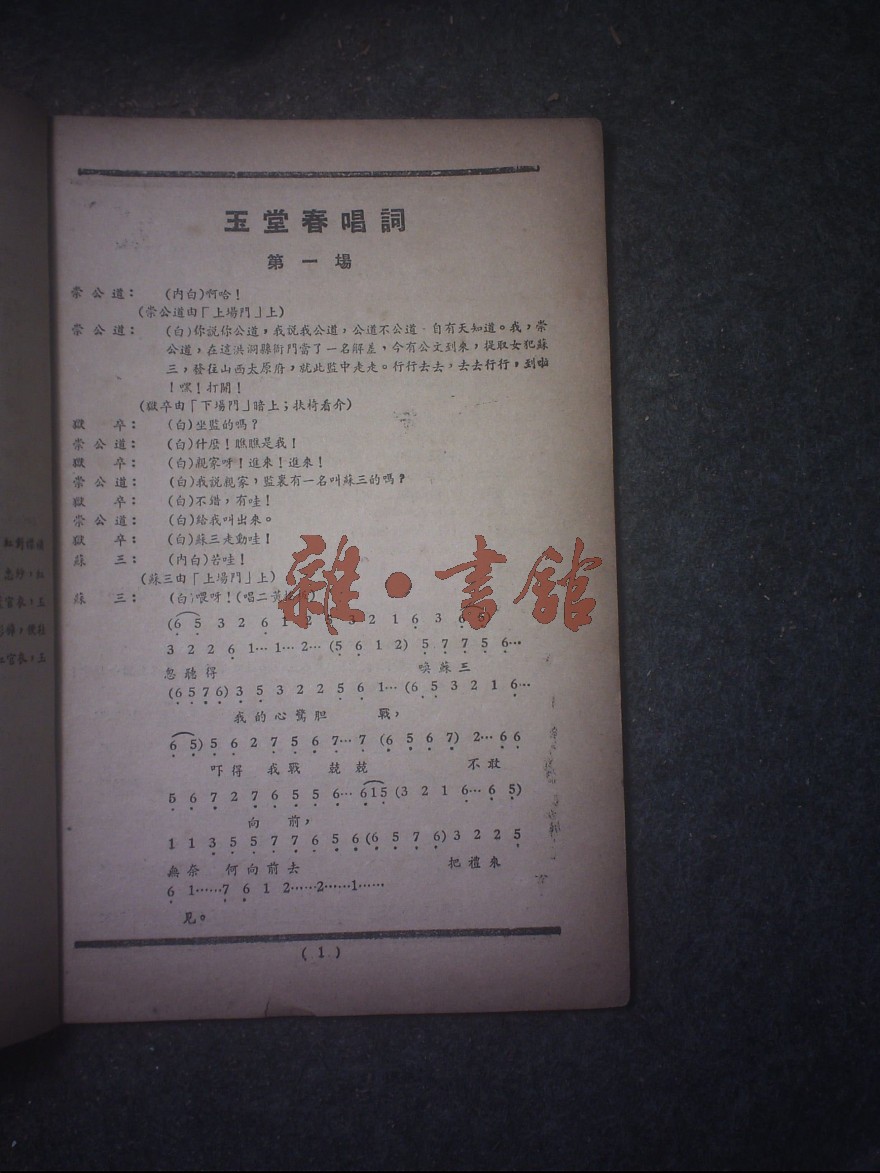 玉堂春唱詞
第一場
崇公道：　(內白)啊哈！
(崇公道由「上場門」上)
崇公道：　(白)你說你公道，我說我公道，公道不公道，自有天知道。我，崇
公道，在這洪洞縣衙門當了一名解差，今有公文到來，從取女犯蘇
三，發往山西太原府，就此監中走走。行行去去，去去行行，到啦
！嘿！打開！
(獄卒由「下場門」暗上；扶椅看介)
獄　卒：　(白)坐監的嗎？
崇公道：　(白)什麼！瞧瞧是我！
獄　卒：　(白)親家呀！進來！進來！
崇公道：　(白)我說親家，監裏有一名叫蘇三的嗎？
獄　卒：　(白)不錯，有哇！
崇公道：　(白)給我叫出來。
獄　卒：　(白)蘇三走動哇！
蘇　三：　(內白)苦哇！
(蘇三由「上場門」上)
蘇　三：　(白)喂呀！(唱二黃
(6 5 3 2 6 1 2 3 2 1 6 3 6
3 2 2 6 1… 1… 2… (5 6 1 2) 5 7 7 5 6…
忽聽得　喚蘇三
(6 5 7 6) 3 5 3 2 2 5 6 1… (6 5 3 2 1 6…
我的心驚胆　戰，
6 5) 5 6 2 7 5 6 7… 7 (6 5 6 7) 2… 6 6
吓得　我戰　兢兢　不敢
5 6 7 2 7 6 5 5 6… 6 1 5 (3 2 1 6… 6 5)
向　前，
1 1 3 5 5 7 7 6 5 6 (6 5 7 6) 3 2 2 5
無奈　何向前去　把禮來
6 1……7 6 1 2……2……1……
見。
(1)
雜·書館